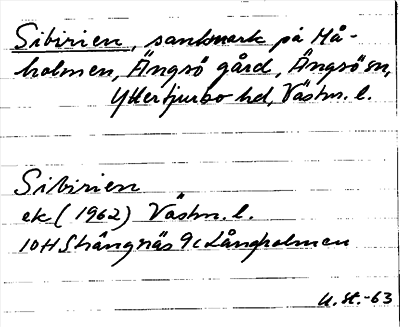 Sibirien, sankmark på Hå-
holmen, Ängsö gård, Ängsö sn,
Yttertjurbo hd, Västm. l.
Sibirien
ek (1962) Västm. l.
10H Strängnäs 9c Långholmen
U. St. -63